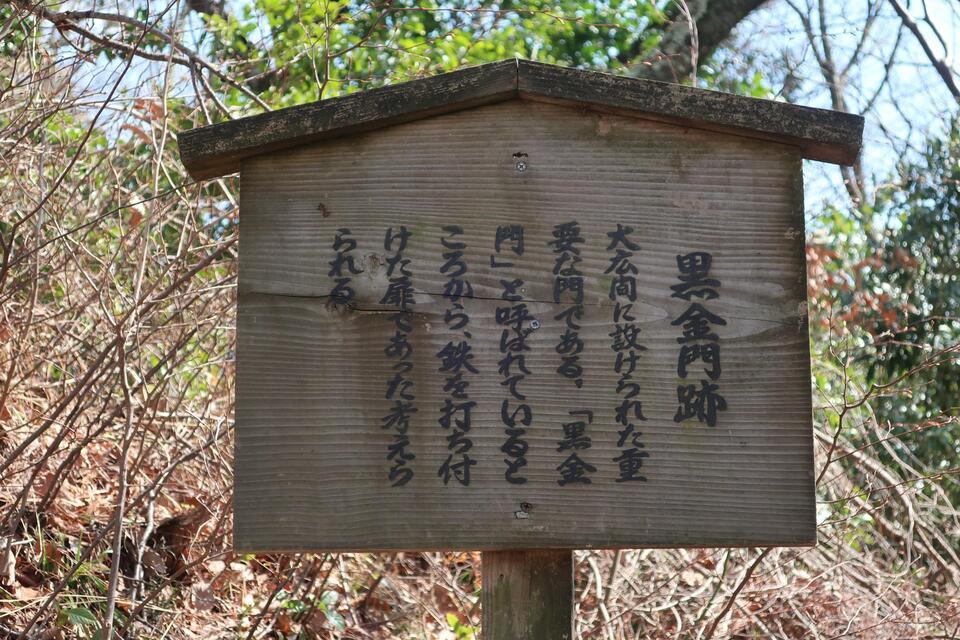 黒金門跡
大広間に設けられた重
要な門である、「黒金
門」と呼ばれていると
ころから、鉄を打ち付
けた扉であった考えら
られる